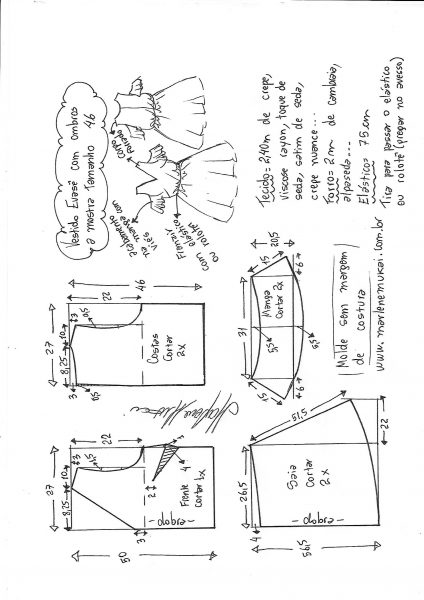 Vestido Evasê com ombros
a mostra Tamanho 46
Corpo
forrado
acabamento
viés
na manga com
Franzir
elástico
com rolotê
ou
Tecido = 2,40m de crepe,
viscose rayon, toque de
seda, satim de seda,
crepe nuance...
Forro = 2m de cambraia,
alpaseda...
Elástico = 75cm
Tira para passar o elástico
ou rolotê (pregar no avesso)
46
22
27
8,25
10
3
0,5
3
0,5
Costas
Cortar
2x
20,5
15
6
31
Manga
Cortar 2x
5,5
5,5
15
6
Molde sem margem
de costura
www.marlenemukai.com.br
Marlene Mukai
27
8,25
10
3
22
1,5
3
4
2
Frente
cortar 1x
dobra
3
50
51,5
22
26,5
Saia
Cortar
2x
dobra
4
56,5